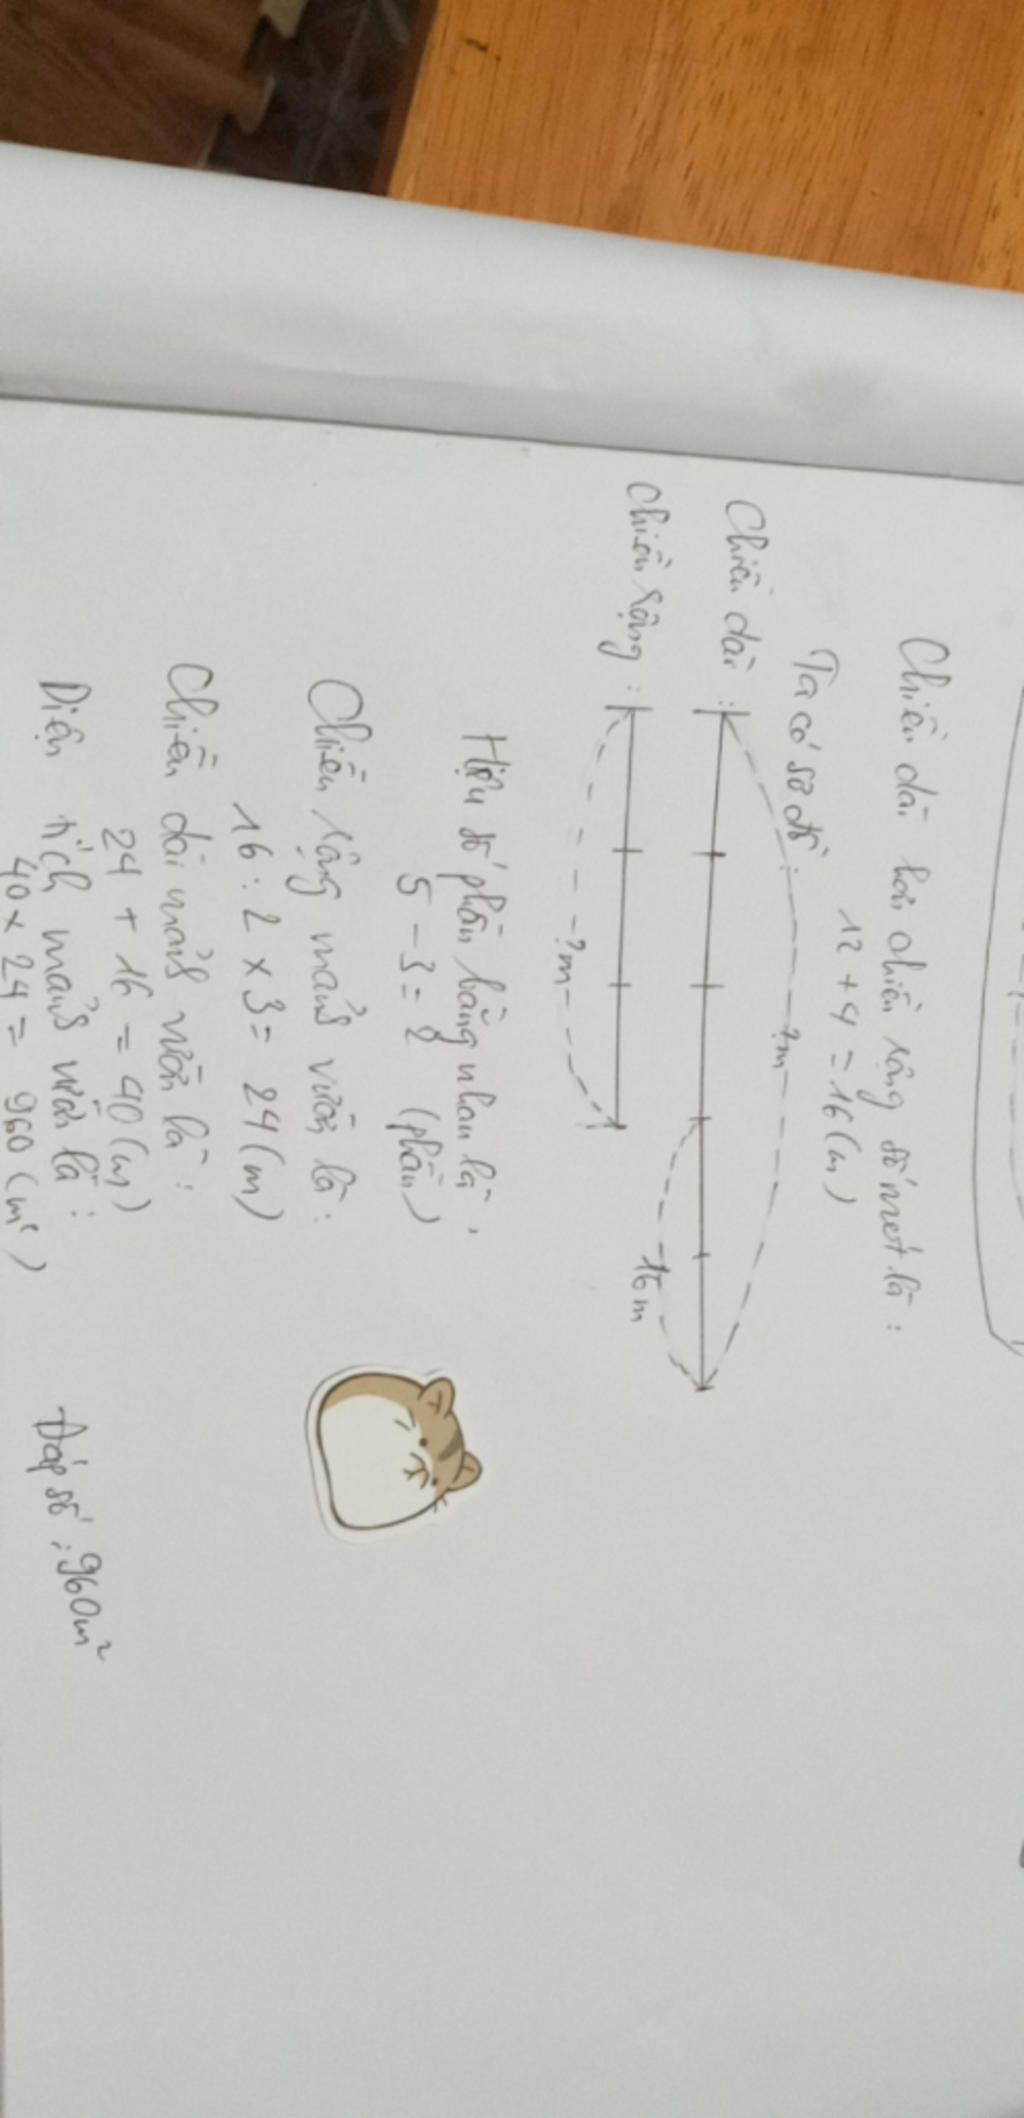 Chiều dài hơn chiều rộng số mét là :
12 + 4 = 16 (m)
Ta có sơ đồ :
?m
Chiều dài :
16 m
Chiều rộng :
?m
Hiệu số phần bằng nhau là :
5 - 3 = 2 (phần)
Chiều rộng mảnh vườn là :
16 : 2 x 3 = 24 (m)
Chiều dài mảnh vườn là :
24 + 16 = 40 (m)
Diện tích mảnh vườn là :
40 x 24 = 960 (m²)
Đáp số : 960m²